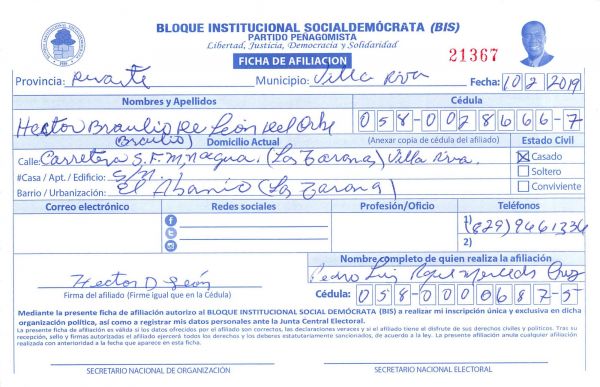 BLOQUE INSTITUCIONAL SOCIALDEMÓCRATA (BIS)
PARTIDO PEÑAGOMISTA
Libertad, Justicia, Democracia y Solidaridad
FICHA DE AFILIACION
21367
Provincia: Duarte Municipio: Villa Riva Fecha: 10 2 2019
Nombres y Apellidos Cédula
Hector Braulio De León del Orbe 058-0028666-7
Braulio) Domicilio Actual (Anexar copia de cédula del afiliado) Estado Civil
Calle: Carretera S.F.M. Nagua. (Las Taranas) Villa Riva. Casado
#Casa / Apt. / Edificio: S/N. Soltero
Barrio / Urbanización: El Abanico (Las Taranas) Conviviente
Correo electrónico Redes sociales Profesión/Oficio Teléfonos
1) (829) 9661336
2)
Nombre completo de quien realiza la afiliación
Hector D León Pedro Luis Mercedes Cruz
Firma del afiliado (Firme igual que en la Cédula) Cédula: 058-0000687-5
Mediante la presente ficha de afiliación autorizo al BLOQUE INSTITUCIONAL SOCIAL DEMÓCRATA (BIS) a realizar mi inscripción única y exclusiva en dicha
organización política, así como a registrar mis datos personales ante la Junta Central Electoral.
La presente ficha de afiliación es válida si los datos ofrecidos por el afiliado son correctos, las declaraciones veraces y si el afiliado tiene el disfrute de sus derechos civiles y políticos. Tras su
recepción, sello y firmas autorizadas el afiliado ejercerá todos los derechos y los deberes estatutariamente sancionados, de acuerdo a la ley. La presente afiliación anula cualquier afiliación
realizada con anterioridad a la fecha que aparece en esta ficha.
SECRETARIO NACIONAL DE ORGANIZACIÓN SECRETARIO NACIONAL ELECTORAL